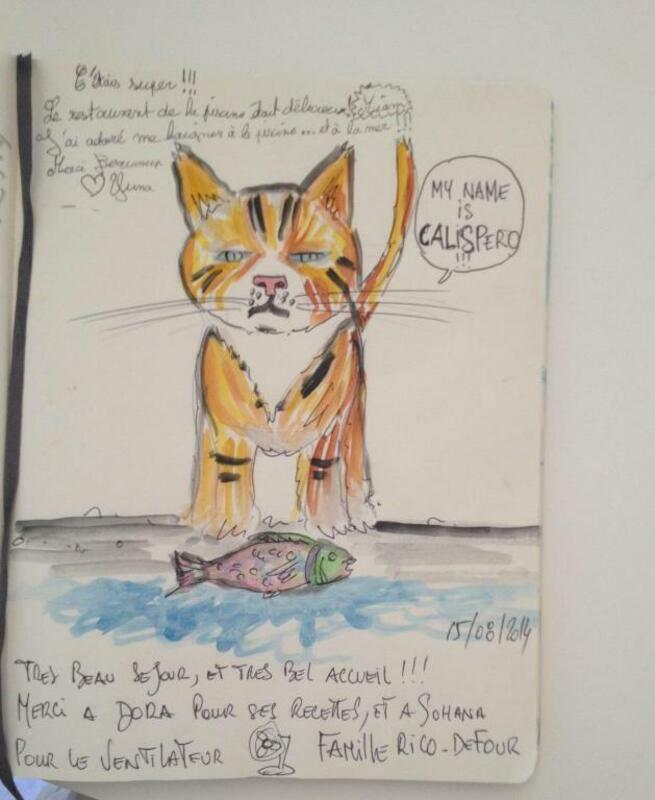 C'était super!!!
Le restaurant de la piscine était délicieux!
J'ai adoré me baigner à la piscine... et à la mer!!
Merci
MY NAME
iS
CALiSPERO
!!!
15/08/2014
TRES BEAU SEJOUR, ET TRES BEL ACCUEIL!!!
MERCI A DORA POUR SES RECETTES, ET A SOHANA
POUR LE VENTILATEUR FAMILLE RICO-DEFOUR